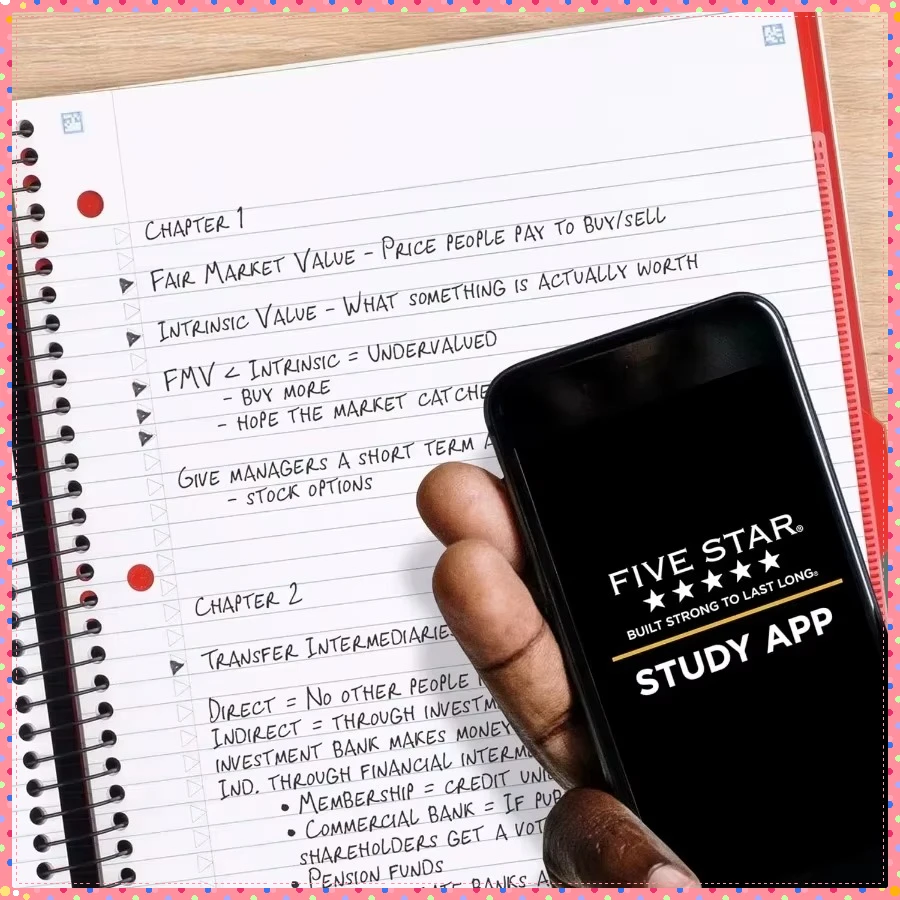 CHAPTER 1
FAIR MARKET VALUE – PRICE PEOPLE PAY TO BUY/SELL
INTRINSIC VALUE – WHAT SOMETHING IS ACTUALLY WORTH
FMV < INTRINSIC = UNDERVALUED
– BUY MORE
– HOPE THE MARKET CATCHE
GIVE MANAGERS A SHORT TERM
– STOCK OPTIONS
CHAPTER 2
TRANSFER INTERMEDIARIES
DIRECT = NO OTHER PEOPLE
INDIRECT = THROUGH INVESTM
INVESTMENT BANK MAKES MONEY
IND. THROUGH FINANCIAL INTERM
• MEMBERSHIP = CREDIT UNI
• COMMERCIAL BANK = IF PUB
SHAREHOLDERS GET A VOT
• PENSION FUNDS
BANKS A
FIVE STAR®
★★★★★
BUILT STRONG TO LAST LONG®
STUDY APP